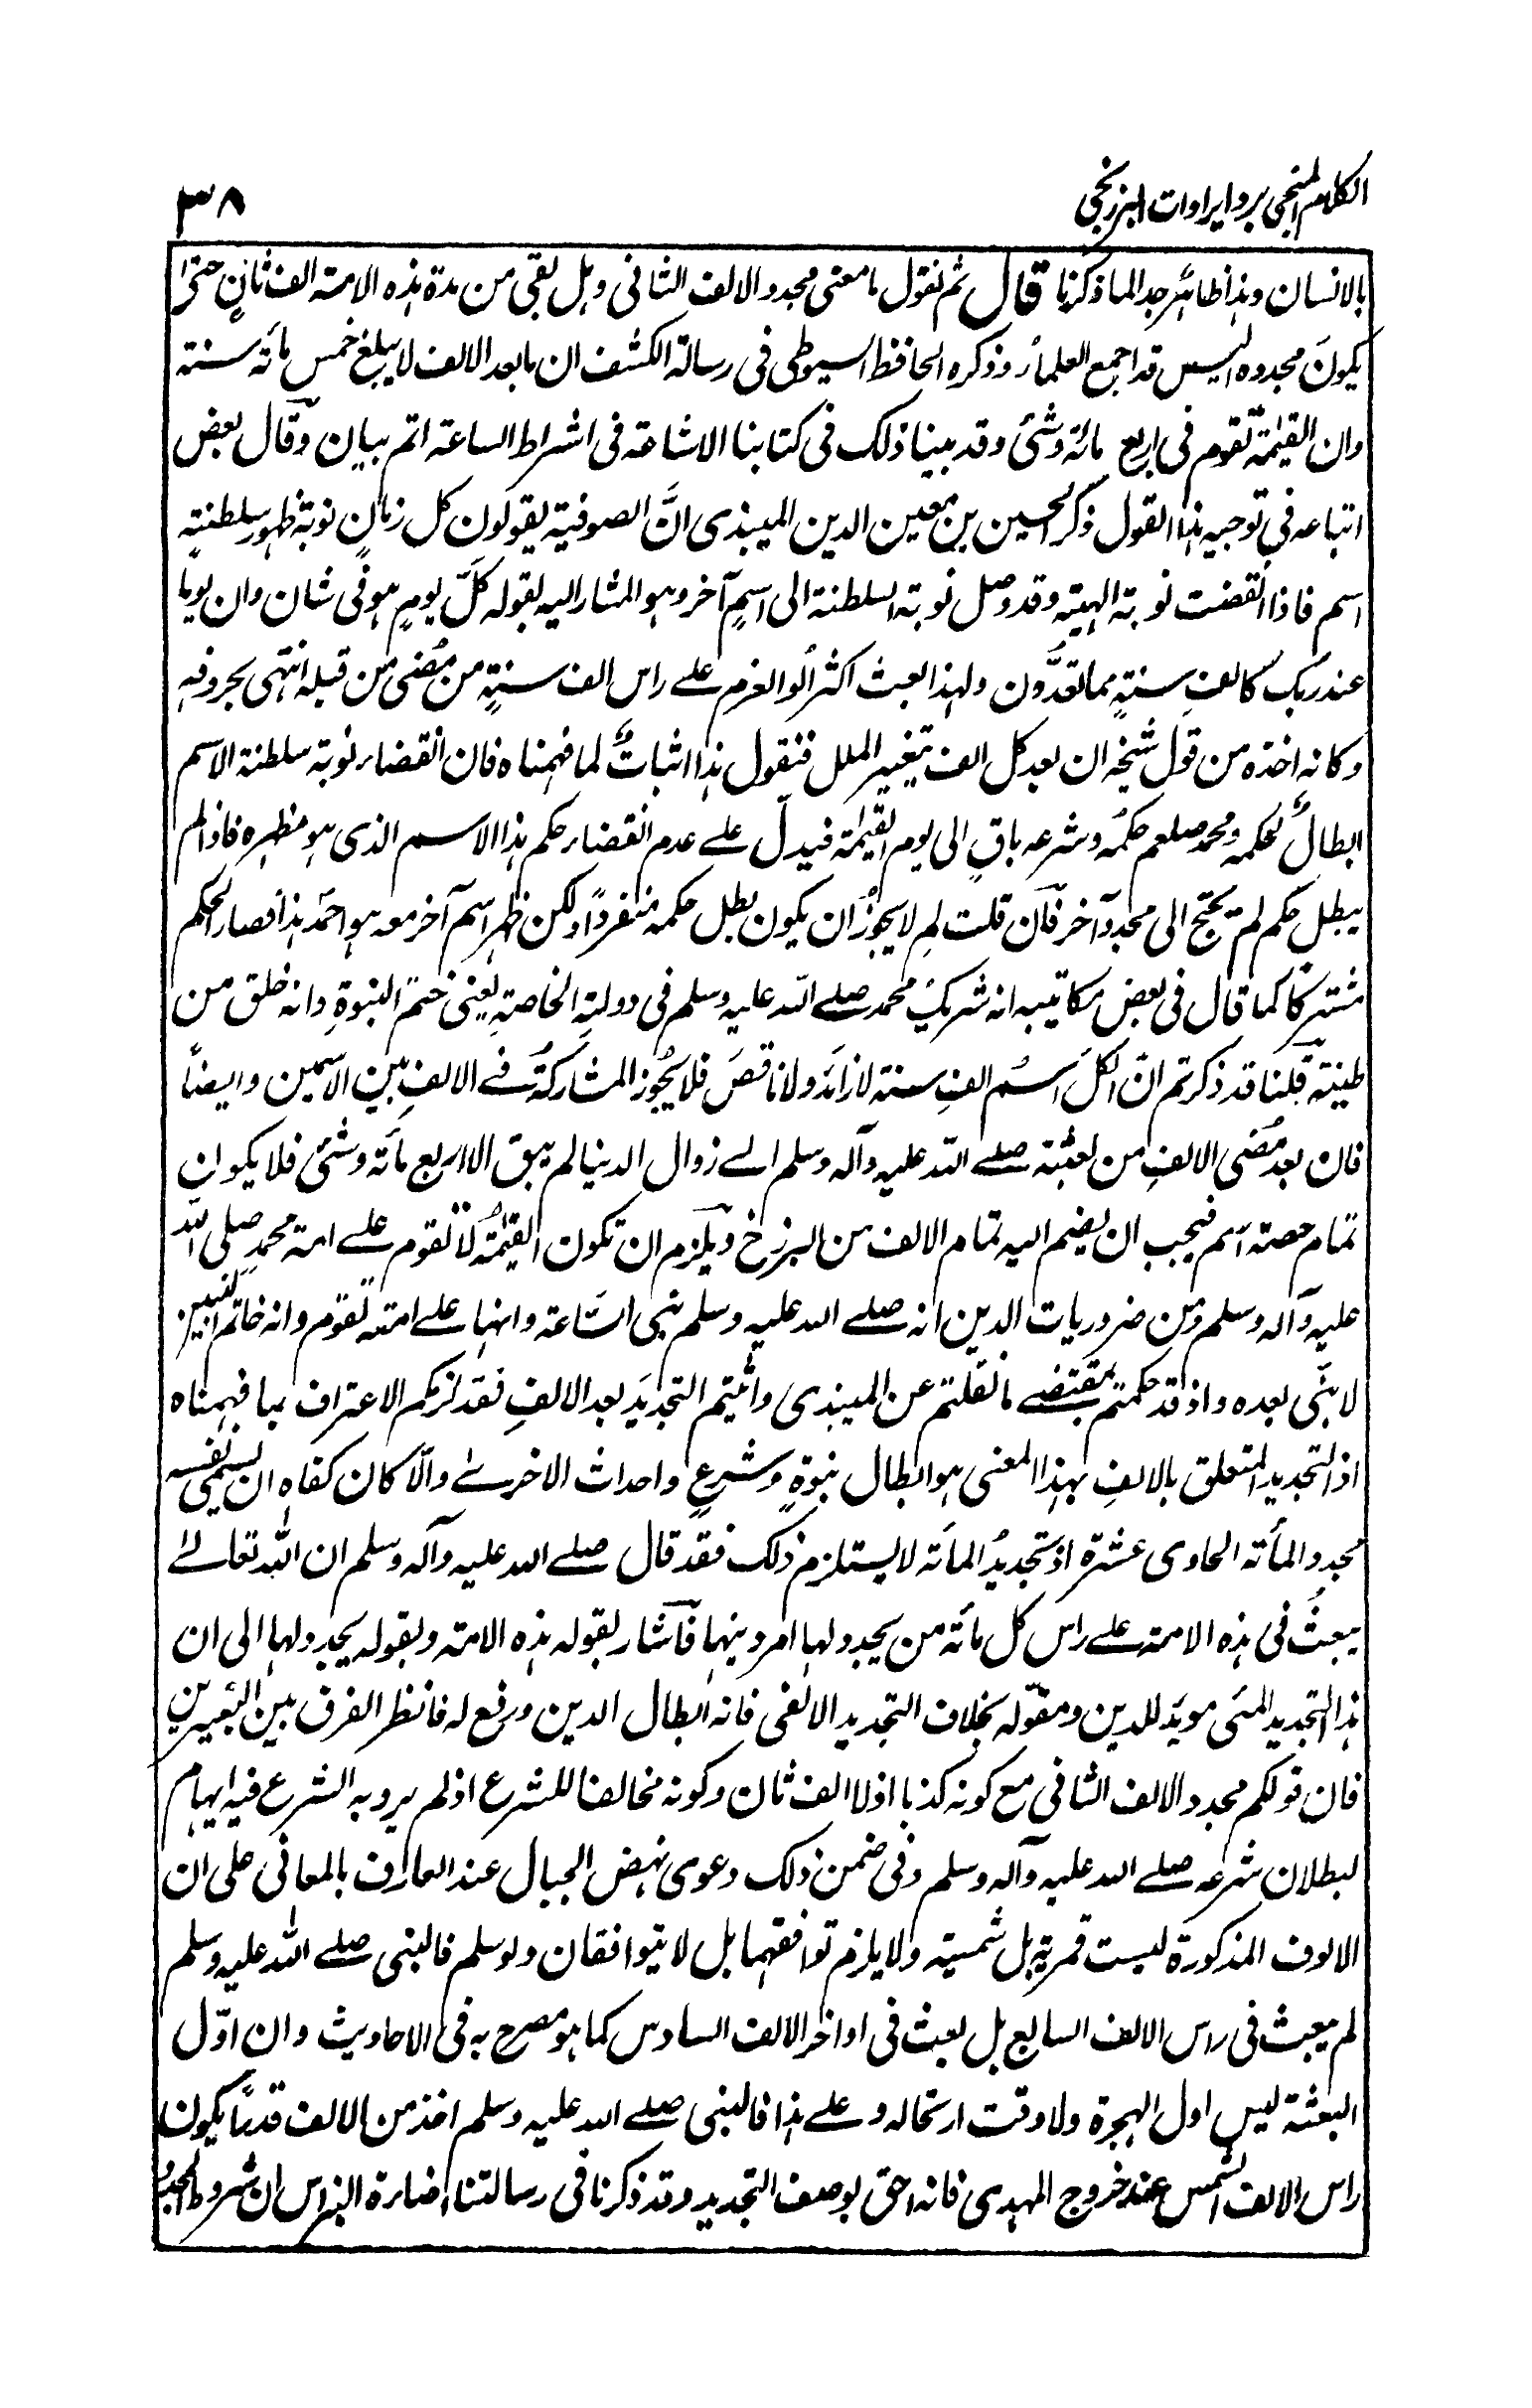 الكلام المنجي برد ايرادات البرزنجي
٣٨
بالانسان وهذا ظاهر جدا لما ذكرنا قال ثم نقول ما معنى مجدد الالف الثاني وهل بقي من مدة هذه الامة الف ثانٍ حتى
يكونَ مجدده اليس قد اجمع العلماء وذكره الحافظ السيوطي في رسالة الكشف ان ما بعد الالف لا يبلغ خمس مائة سنة
وان القيٰمة تقوم في اربع مائة وشئ وقد بينا ذلك في كتابنا الاشاعة في اشراط الساعة اتم بيان وقال بعض
اتباعه في توجيه هذا القول ذكر الحسين بن معين الدين الميبذي انَّ الصوفية يقولون كل زمانٍ نوبة ظهور سلطنةِ
اسم فاذا انقضت نوبته الٰهيته وقد وصل نوبة السلطنة الى اسمٍ آخر وهو المشار اليه بقوله كلَّ يومٍ هو في شان وان يوما
عند ربك كالفِ سنةٍ مما تعدُّون ولهذا بعث اكثر اُلو العزم علے راس الف سنةٍ من مُضى من قبله انتهى بحروفهِ
وكانه اخذه من قول شيخه ان بعد كل الف تغيير الملل فنقول هذا اثباتٌ لما فهمناه فان انقضاء نوبة سلطنة الاسم
ابطالٌ لحكمه ومحمد صلعم حكمُه وشرعه باقٍ الى يوم القيٰمة فيدلّ علے عدم انقضاء حكم هذا الاسم الذى هو مظهره فاذا لم
يبطل حكم لم يحتج الى مجددٍ آخر فان قلت لمِ لا يجوز ان يكون بطل حكمه منفردًا ولكن ظهر اسم آخر معه هو احمد هذا فصار الحكم
مشتركًا كما قال في بعض مكاتيبه انه شريكُ محمد صلے الله عليه وسلم في دولتهِ الخاصةِ يعنى ختم النبوةِ وانه خلق من
طينته قلنا قد ذكرتم انّ لكل اسم الفِ سنة لا زائد ولا ناقصَ فلا يجُوز المشاركة في الالفِ بين الاسمين وايضاً
فان بعد مُضى الالفِ من بعثته صلے الله عليه وآله وسلم الے زوال الدنيا لم يبق الا اربع مائة وشئ فلا يكون
تمام حصة اسم فيجب ان يضم اليه تمام الالف من البرزخ ويلزم ان تكون القيٰمةُ لا تقوم علے امة محمدٍ صلى الله
عليه وآله وسلم ومن ضروريات الدين انه صلے الله عليه وسلم نبى السّاعة وانها علے امته تقوم وانه خاتم النبيين
لا نبَّى بعده واذ قد حكمتم بمقتضے ما نقلتم عن الميبذى واثبتم التجديدَ بعد الالفِ فقد لزمكم الاعتراف بما فهمناه
اذ التجديد المتعلق بالالفِ بهذا المعنى هو ابطال نبوةٍ وشرعٍ واحداث الاخرىٰ والّا كان كفاه ان يسمى نفسه
مجدد المأة الحادى عشرة اذ تجديدُ المأة لا يستلزم ذلك فقد قال صلے الله عليه وآله وسلم ان الله تعالىٰ
يبعثُ في هذه الامة علے راس كل مائة من يجدد لها امر دينها فاَشار بقوله هذه الامة وبقوله يجدد لها الى ان
هذا التجديد المئى مويد للدين ومقوّله بخلاف التجديد الالفى فانه ابطال الدين ورفع له فانظر الفرق بين التعبيرين
فان قولكم مجدد الالف الثانى مع كونه كذبا اذ لا الف ثان وكونه مخالفا للشرع اذ لم يرد به الشرع فيه ايهام
لبطلان شرعه صلے الله عليه وآله وسلم وفى ضمن ذلك دعوى نهض الجبال عند العارف بالمعانى على ان
الالوف المذكورة ليست قمرية بل شمسية ولا يلزم توافقهما بل لا يتوافقان ولو سلم فالنبى صلے الله عليه وسلم
لم يبعث فى راس الالف السابع بل بعث فى اواخر الالف السادس كما هو مصرح به فى الاحاديث وان اوّل
البعثة ليس اول الهجرة ولا وقت ارتحاله وعلے هذا فالنبى صلے الله عليه وسلم اخذ من الالف قدراً يكون
راس الالف الشمس عند خروج المهدى فانه احق بوصف التجديد وقد ذكرنا فى رسالتنا اضارة النبراس ان شروط